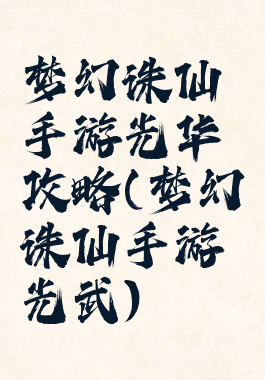 梦幻诛仙
手游光华
攻略(梦幻
诛仙手游
光武)